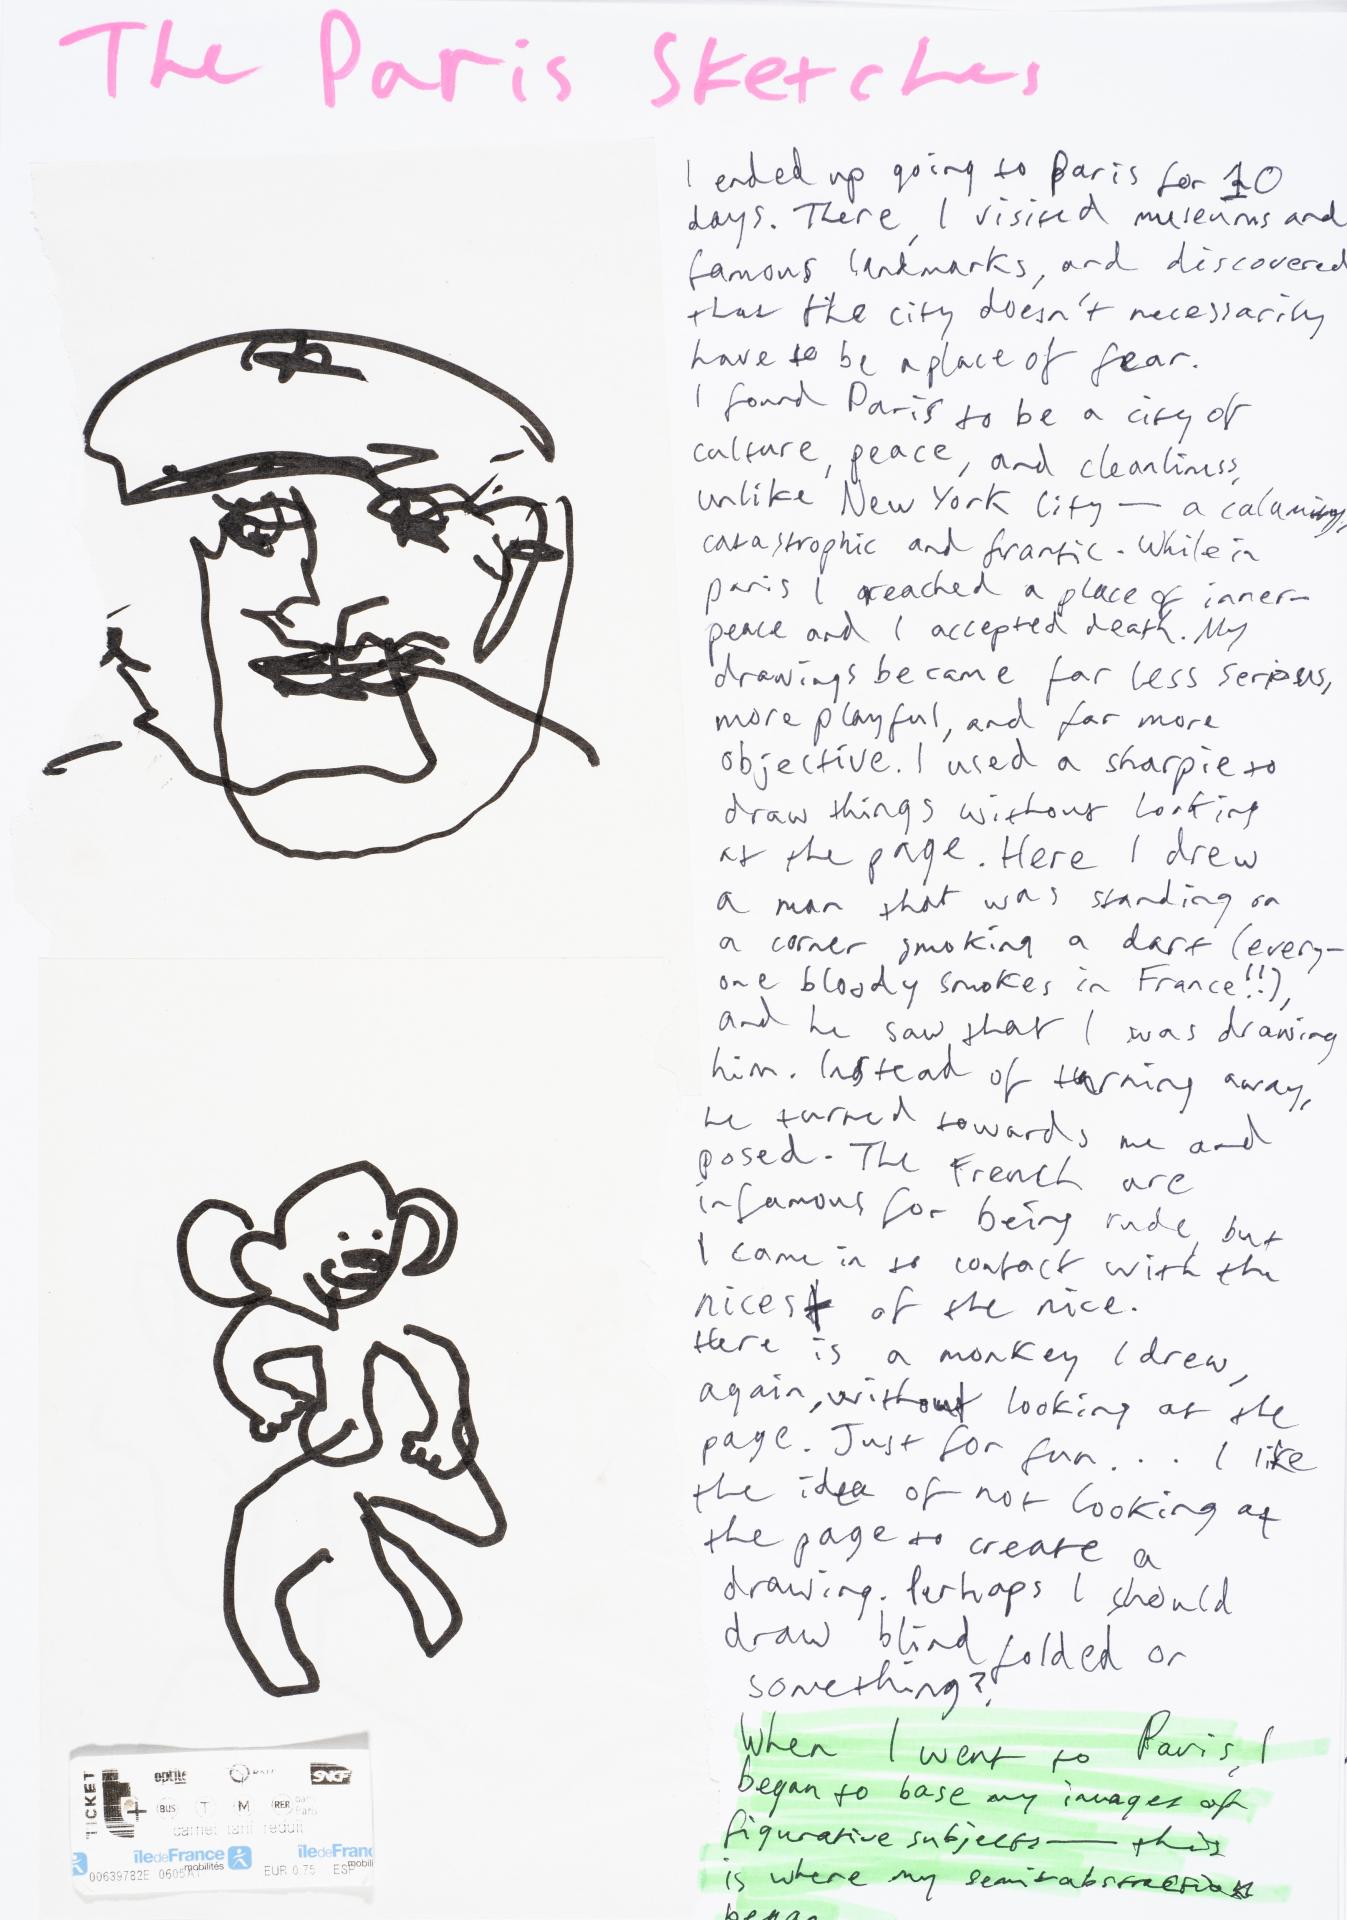 The Paris Sketches
I ended up going to Paris for 10
days. There, I visited museums and
famous landmarks, and discovered
that the city doesn't necessarily
have to be a place of fear.
I found Paris to be a city of
culture, peace, and cleanliness,
unlike New York City — a calamity,
catastrophic and frantic. While in
paris I reached a place of inner-
peace and I accepted death. My
drawings became far less serious,
more playful, and far more
objective. I used a sharpie to
draw things without looking
at the page. Here I drew
a man that was standing on
a corner smoking a dart (every-
one bloody smokes in France!!),
and he saw that I was drawing
him. Instead of turning away,
he turned towards me and
posed. The French are
infamous for being rude, but
I came in to contact with the
nicest of the nice.
Here is a monkey I drew,
again, without looking at the
page. Just for fun... I like
the idea of not looking at
the page to create a
drawing. Perhaps I should
draw blind folded or
something?
When I went to Paris, I
began to base my images of
figurative subjects — this
is where my semi-abstraction
began
TICKET
t+
optile
SNCF
BUS T M RER
carnet tarif reduit
îledeFrance
mobilités
îledeFranc
mobili
00639782E 0605A1 EUR 0.75 ESP